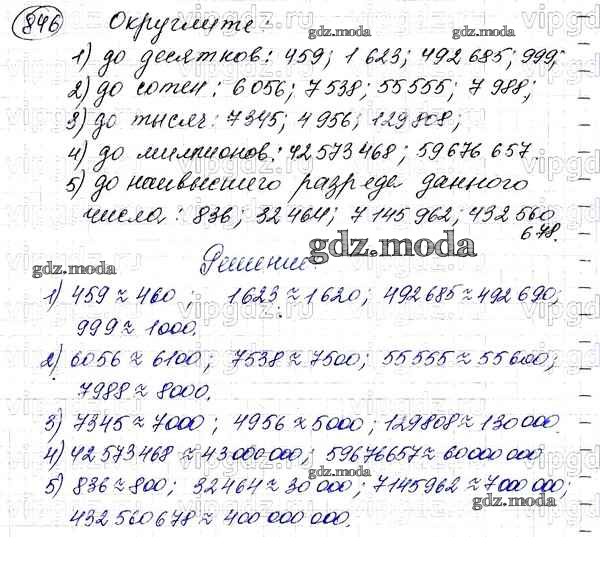 846 Округлите:
1) до десятков: 459; 1 623; 492 685; 999;
2) до сотен: 6056; 7538; 55555; 7 988;
3) до тысяч: 7345; 4 956; 129808;
4) до миллионов: 42573468; 59676 657.
5) до наивысшего разреда данного
числа: 836; 32 464; 7 145 962; 432 560
678.
gdz.moda
Решение
gdz.moda
1) 459 ≈ 460; 1623 ≈ 1620; 492685 ≈ 492690;
999 ≈ 1000.
2) 6056 ≈ 6100; 7538 ≈ 7500; 55555 ≈ 55600;
7988 ≈ 8000.
3) 7345 ≈ 7000; 4956 ≈ 5000; 129808 ≈ 130 000.
4) 42573468 ≈ 43000000; 59676657 ≈ 60000000
5) 836 ≈ 800; 32464 ≈ 30 000; 7145962 ≈ 7000 000;
gdz.moda
gdz.moda
432 560 678 ≈ 400 000 000.